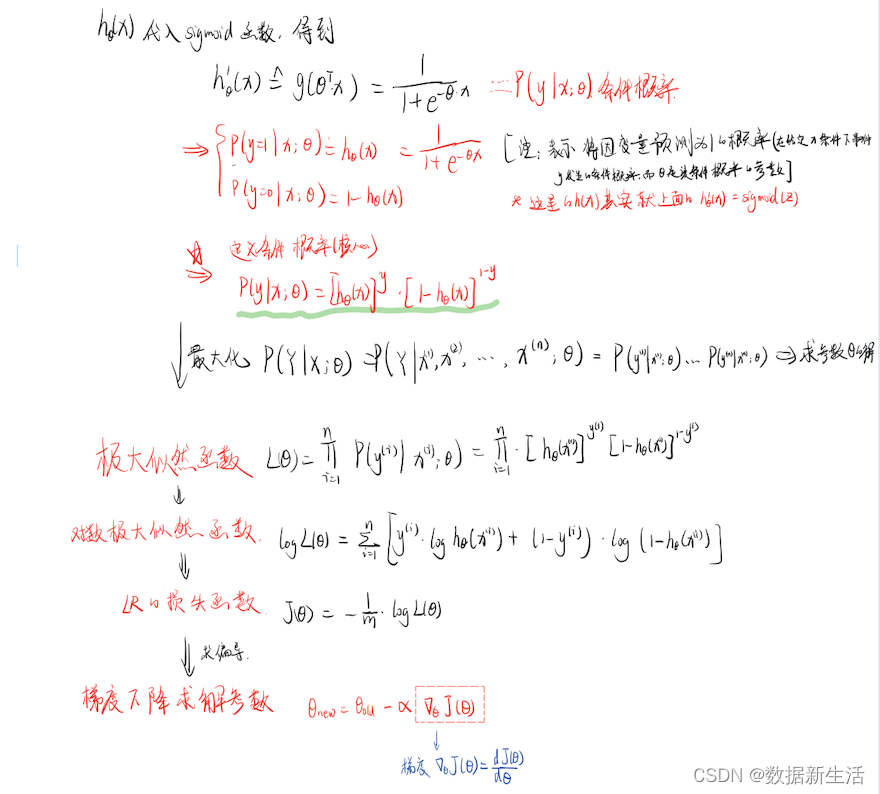 hθ(x) 代入 sigmoid 函数, 得到
h'θ(x) ≙ g(θᵀ·x) = 1/(1+e^(-θ·x)) = P(y|x;θ) 条件概率
⇒ { P(y=1|x;θ) = hθ(x) = 1/(1+e^(-θx)) [注: 表示将因变量预测为1的概率(在给定x条件下事件
P(y=0|x;θ) = 1-hθ(x) y发生的条件概率, 而θ是该条件概率的参数]
* 这里的h(x)其实就上面的 h'θ(x) = sigmoid(z)
☆ ⇒ 定义条件概率(核心)
P(y|x;θ) = [hθ(x)]^y · [1-hθ(x)]^(1-y)
↓ 最大化 P(Y|X;θ) = P(Y|x⁽¹⁾, x⁽²⁾, ..., x⁽ⁿ⁾; θ) = P(y⁽¹⁾|x⁽¹⁾;θ)...P(y⁽ⁿ⁾|x⁽ⁿ⁾;θ) ⇒ 求参数θ的解
极大似然函数 L(θ) = ∏_{i=1}^{n} P(y⁽ⁱ⁾|x⁽ⁱ⁾;θ) = ∏_{i=1}^{n} · [hθ(x⁽ⁱ⁾)]^(y⁽ⁱ⁾) [1-hθ(x⁽ⁱ⁾)]^(1-y⁽ⁱ⁾)
↓
对数极大似然函数 log L(θ) = ∑_{i=1}^{n} [y⁽ⁱ⁾ · log hθ(x⁽ⁱ⁾) + (1-y⁽ⁱ⁾) · log (1-hθ(x⁽ⁱ⁾))]
⇓
LR的损失函数 J(θ) = -1/m · log L(θ)
⇓ 求偏导.
梯度下降求解参数 θnew = θold - α ∇θ J(θ)
↓
梯度 ∇θ J(θ) = dJ(θ)/dθ
CSDN @数据新生活